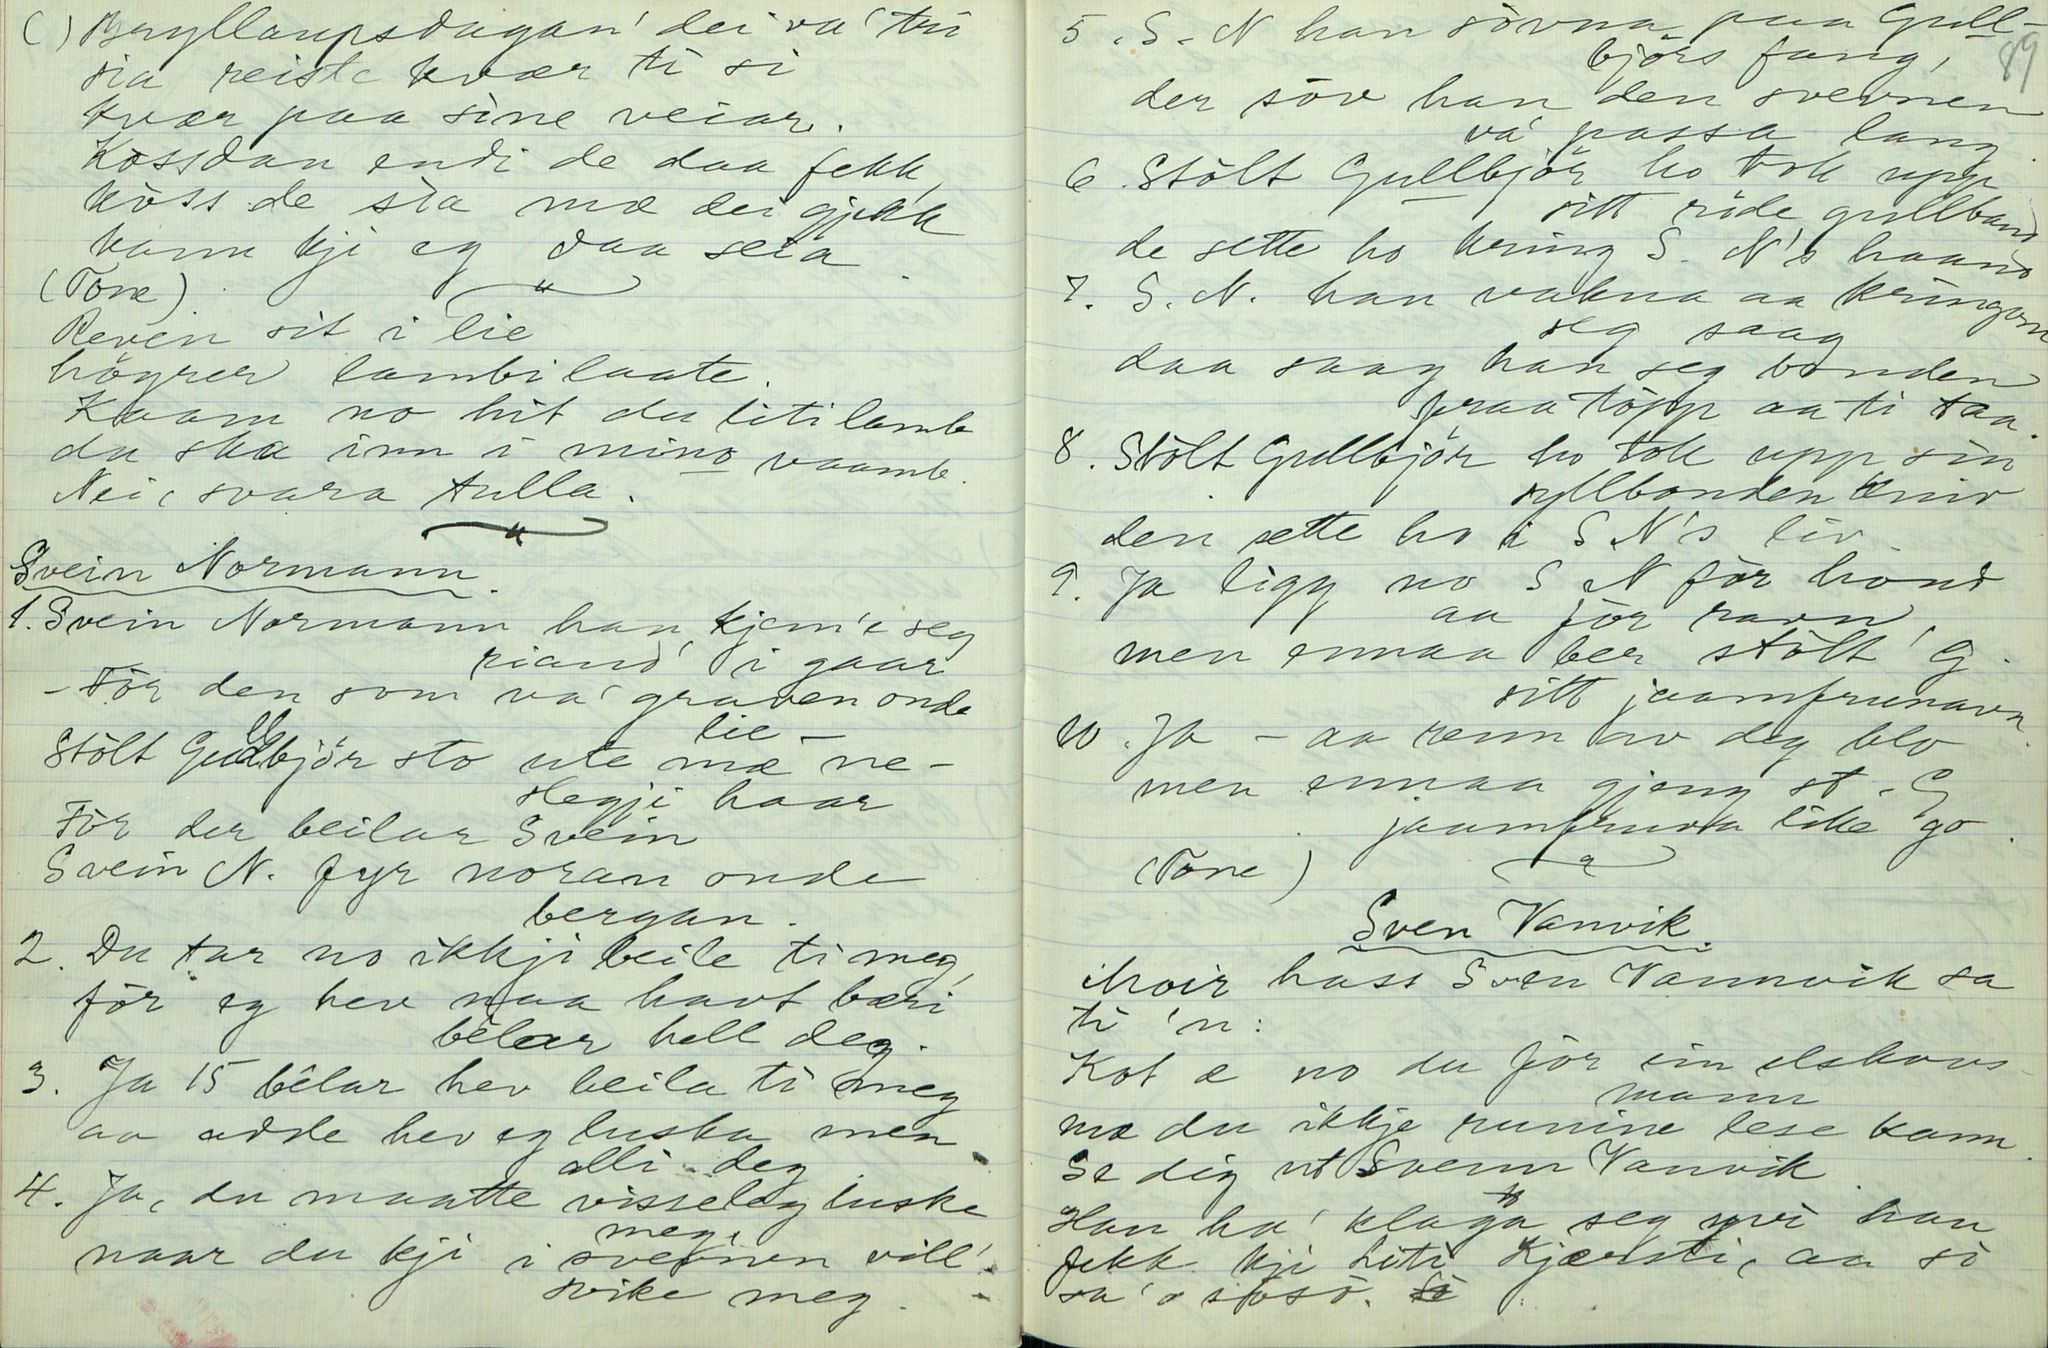 () Bryllaupsdagan' dei va' tri
sia reiste kvær ti si
kvær paa sine veiar.
Kossdan endi de daa fekk,
köss de sia mæ dei gjekk
kann kji eg daa seia.
(Tone)
Reven sit i lie
högrer lambilaate.
Kaam no hit du liti lamb
du ska inn i mino vaamb.
Nei, svara tulla.
Svein Normann.
1. Svein Normann han kjem'e seg
riand' i gaar
- För den som va' graven onde
lie -
Stölt Gullbjör sto ute mæ ne-
slegji haar
För der beilar Svein
Svein N. fyr noran onde
bergan.
2. Du tar no ikkji beile ti meg,
för eg hev naa havt bæri
bêlar hell deg.
3. Ja 15 bêlar hev beila ti meg
aa adde hev eg luska men
alli deg
4. Ja, du maatte visseleg luske
meg,
naar du kji i svevnen vill'
svike meg.
89
5. S. N han sövna paa Gull-
björs fang,
der söv han den svevnen
va' passa lang.
6. Stölt Gullbjör ho tok upp
sitt röde gullband
de sette ho kring S. N's haand
7. S. N. han vakna aa kringom
seg saag
daa saag han seg bonden
fraa töpp aa ti taa.
8. Stölt Gullbjör ho tok upp sin
syllbonden kniv
den sette ho i S N's liv.
9. Ja ligg no S N för hond
aa för ravn,
men ennaa ber stölt' G.
sitt jaamfrunavn.
10. Ja - aa renn no deg blo
men ennaa gjeng st. G
jaamfruva like go.
(Tone)
Sven Vanvik.
Moir hass Sven Vannvik sa
ti 'n:
Kot æ no du för ein elskovs-
mann
mæ du ikkje runine lese kann.
Se dig ut Svenn Vanvik
Han ha' klaga seg yvi han
fekk kji Liti Kjærsti, aa so
sa' o soso.